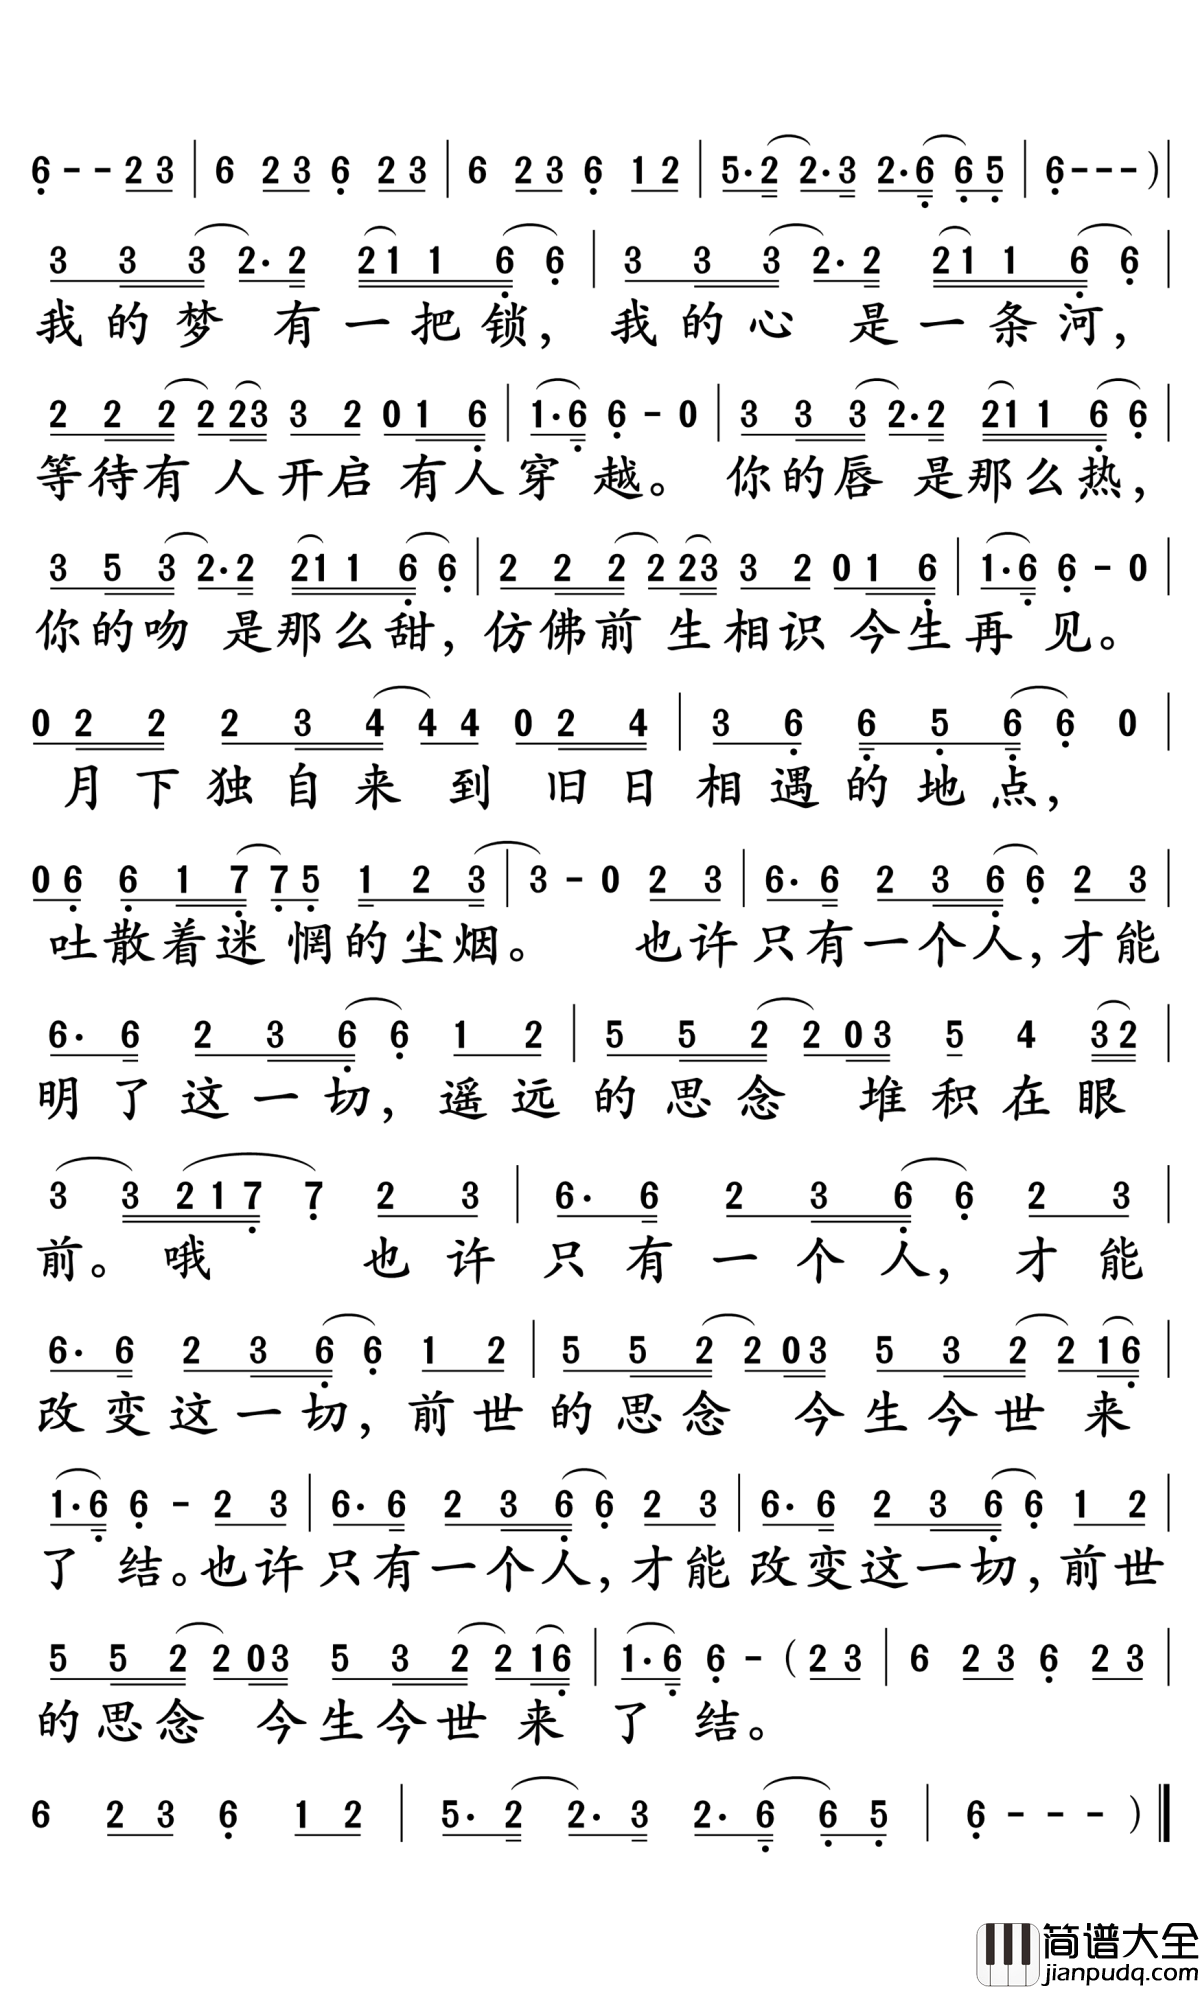 6--23|6 23 6 23|6 23 6 12|5·2 2·3 2·6 65|6---)|
3 3 3 2·2 211 6 6|3 3 3 2·2 211 6 6|
我的梦 有一把锁，我的心 是一条河，
2 2 2 223 3 2 01 6|1·6 6-0|3 3 3 2·2 211 6 6|
等待有 人开启 有人穿 越。 你的唇 是那么热，
3 5 3 2·2 211 6 6|2 2 2 223 3 2 01 6|1·6 6-0
你的吻 是那么甜，仿佛前 生相识 今生再 见。
0 2 2 2 3 4 4 4 0 2 4|3 6 6 5 6 6 0|
月下独自来 到 旧日相遇的地点，
0 6 6 1 7 7 5 1 2 3|3-0 2 3|6·6 2 3 6 6 2 3|
吐散着迷 惘的尘烟。 也许只有一个人，才能
6·6 2 3 6 6 1 2|5 5 2 203 5 4 32|
明了这一切，遥远的思念 堆积在眼
3 3 217 7 2 3|6·6 2 3 6 6 2 3|
前。哦 也许只有一个人，才能
6·6 2 3 6 6 1 2|5 5 2 203 5 3 2 216|
改变这一切，前世的思念 今生今世来
1·6 6-2 3|6·6 2 3 6 6 2 3|6·6 2 3 6 6 1 2|
了 结。也许只有一个人，才能改变这一切，前世
5 5 2 203 5 3 2 216|1·6 6-(23|6 23 6 23|
的思念 今生今世 来 了 结。
6 23 6 12|5·2 2·3 2·6 65|6---)‖
简谱大全
jianpudq.com